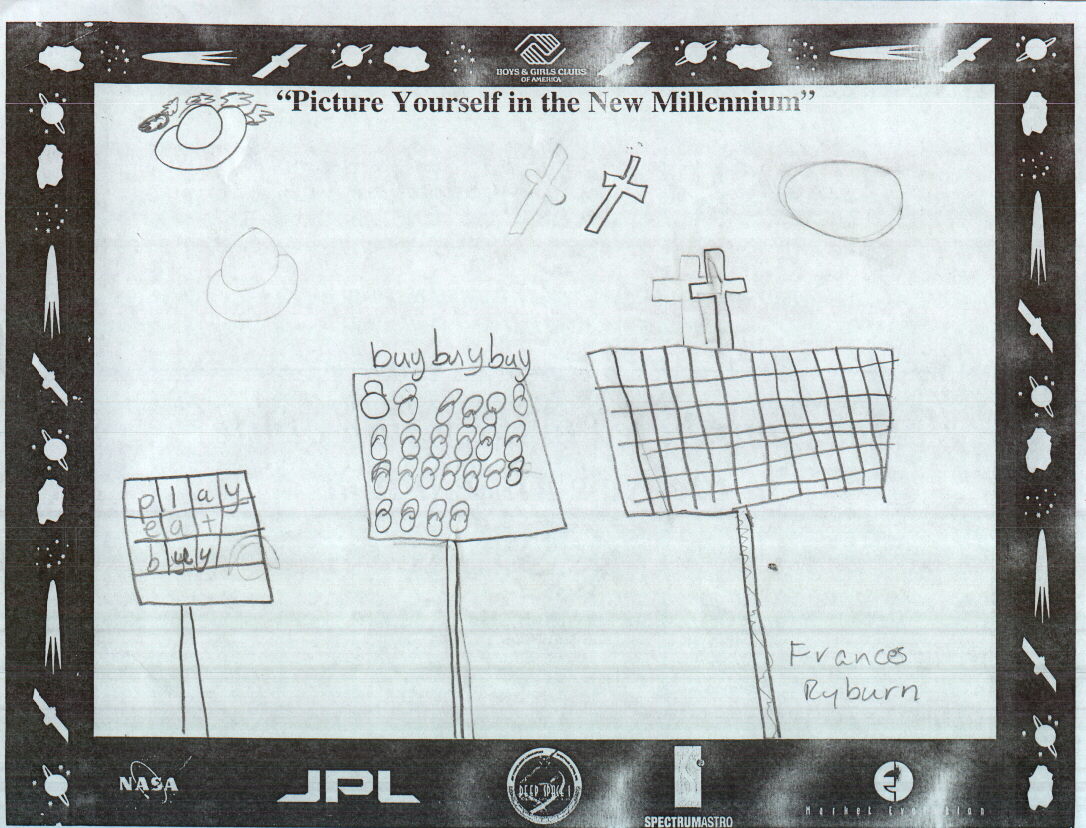 BOYS & GIRLS CLUBS
OF AMERICA
"Picture Yourself in the New Millennium"
buy buy buy
play
eat
buy
Frances
Ryburn
NASA
JPL
DEEP SPACE 1
SPECTRUMASTRO
Market Evolution